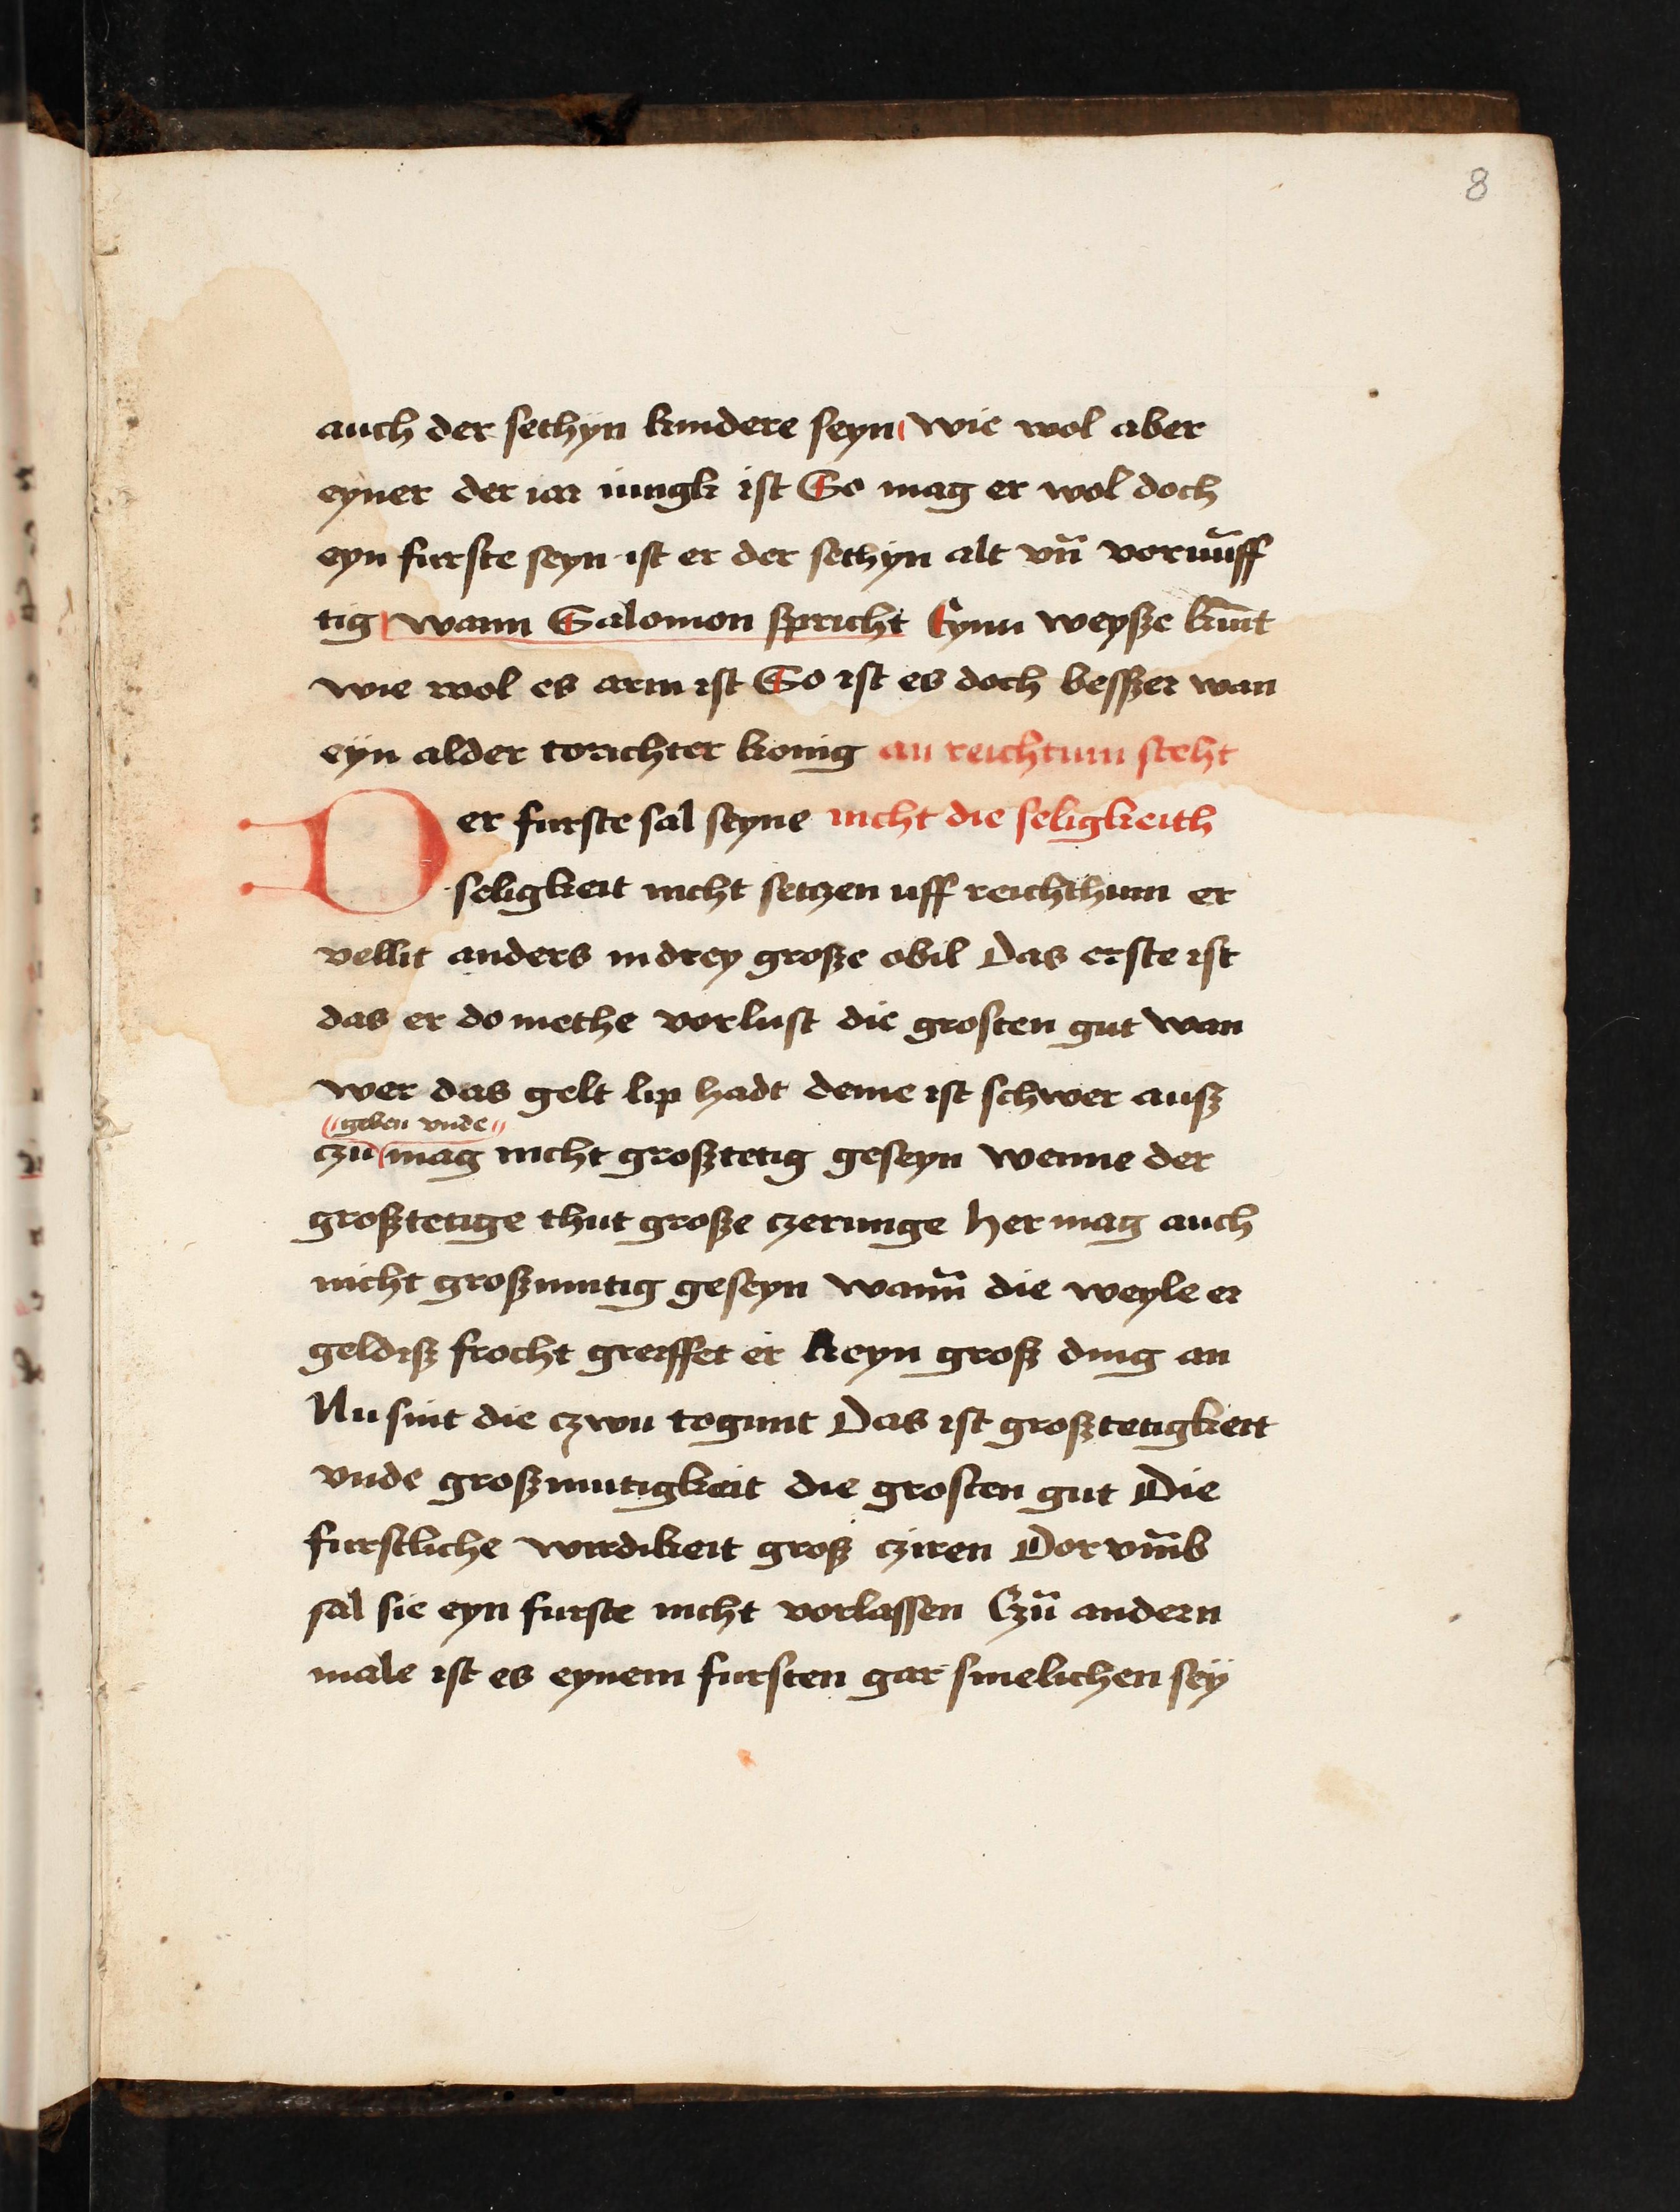 8
auch der sethÿn kindere seyn wie wol aber
eyner der iar iungk ist So mag er wol doch
eyn furste seyn ist er der sethÿn alt vn̄ vornūff
tig wann Salomon spricht Eynn weysze kīnt
wie wol es arm ist So ist es doch besszer wan
eÿn alder torichter konig an reichtum steht
Der furste sal seyne nicht die seligkeith
seligkeit nicht setczen uff reichthum er
vellit anders in drey grosze obil Das erste ist
das er do methe vorlust die grosten gut wan
wer das gelt lip hadt deme ist schwer ausz
geben vnde
czu mag nicht grosztetig geseyn wenne der
grosztetige thut grosze czerunge her mag auch
nicht groszmutig geseyn wann̄ die weyle er
geldisz frocht greiffet er keyn grosz ding an
Nu sint die czwu togunt Das ist grosztetigkeit
vnde groszmutigkeit die grosten gut Die
furstliche wirdikeit grosz cziren Dor vm̄b
sal sie eyn furste nicht vorlassen Czū andern
male ist es eynem fursten gar smelichen seÿ